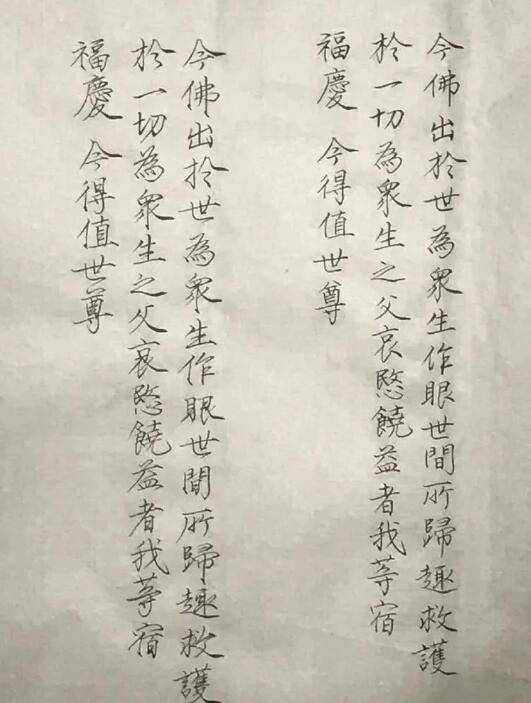 今佛出於世為衆生作眼世間所歸趣救護
於一切為衆生之父哀愍饒益者我等宿
福慶 今得值世尊
今佛出於世為衆生作眼世間所歸趣救護
於一切為衆生之父哀愍饒益者我等宿
福慶 今得值世尊